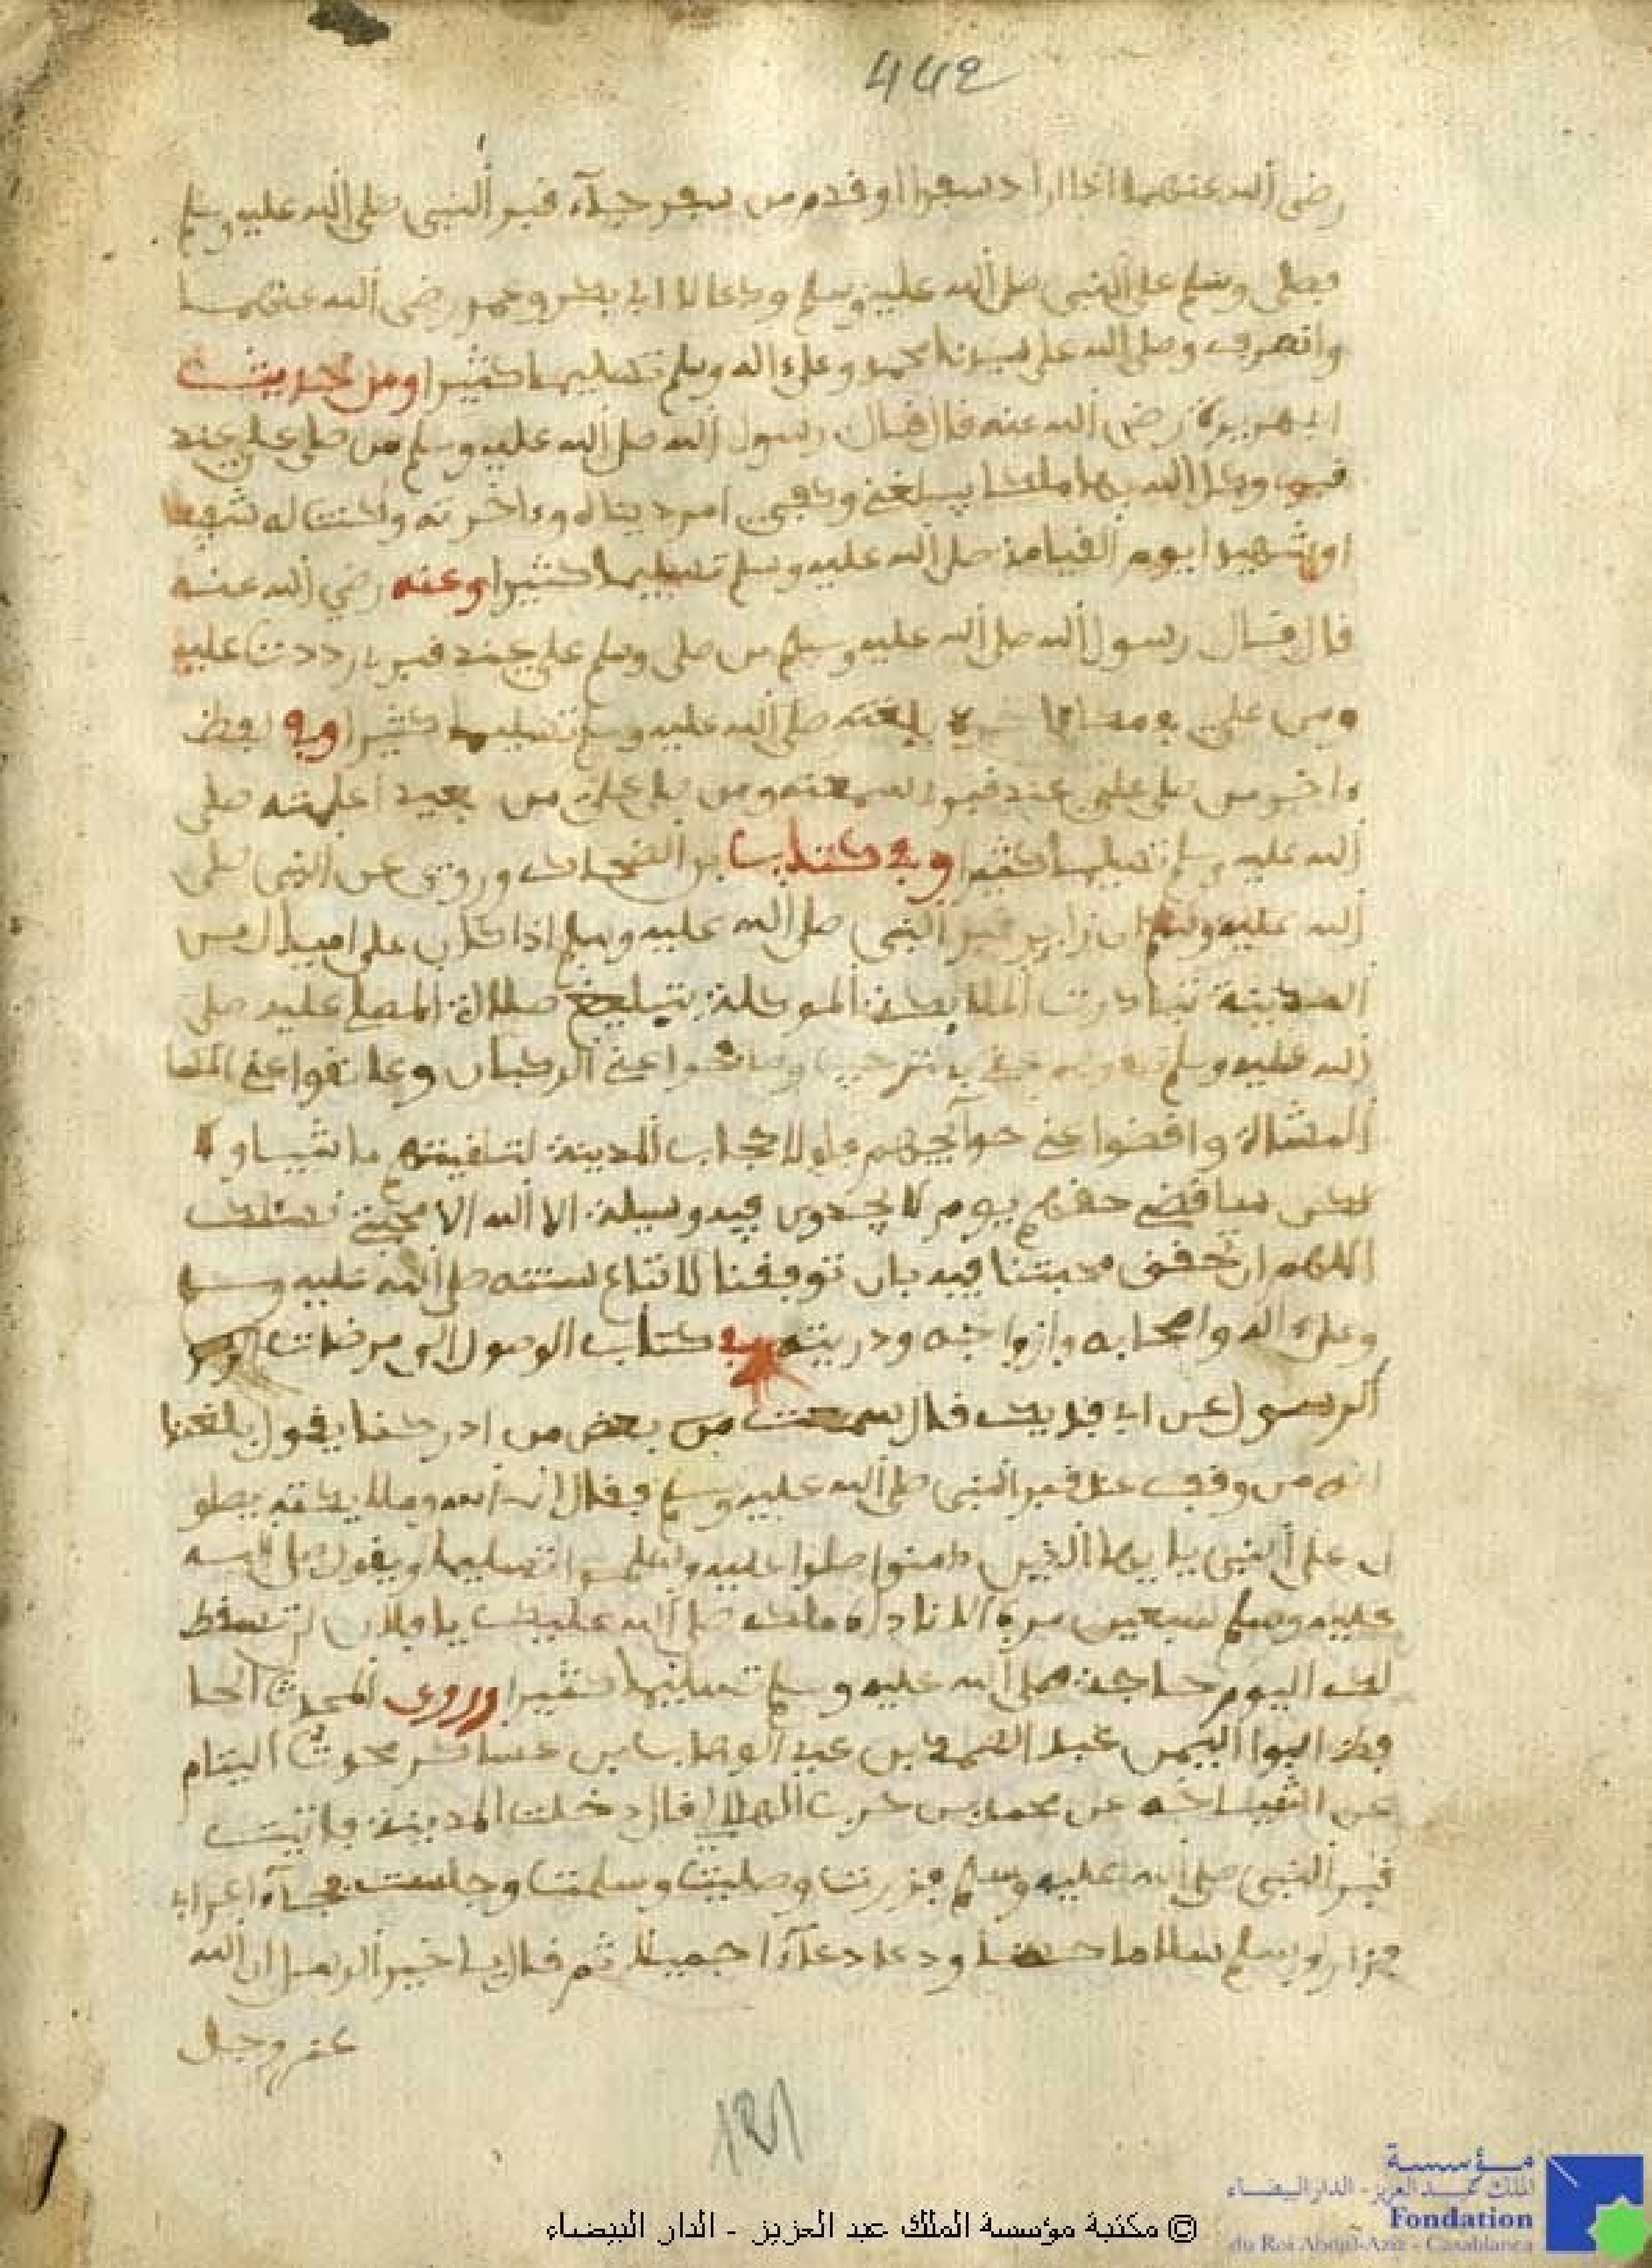 442
رضى الله عنهما اذا اراد سفرا او قدم من سفر جآء قبر النبى صلى الله عليه وسلم
فصلى وسلم على النبى صلى الله عليه وسلم ودعا لابى بكر وعمر رضى الله عنهما
وانصرف وصلى الله على سيدنا محمد وعلىءاله وسلم تسليما كثيرا ومن حديث
ابى هريرة رضى الله عنه قال قال رسول الله صلى الله عليه وسلم من صلى على عند
قبرى وكل الله بها ملكا يبلغنى وكفى امر دنياه وءاخرته وكنت له شفيعا
او شهيدا يوم القيامة صلى الله عليه وسلم تسليما كثيرا وعنه رضي الله عنه
قال قال رسول الله صلى الله عليه وسلم من صلى وسلم على عند قبرى رددت عليه
ومن على بلغته صلى الله عليه وسلم تسليما كثيرا وفى لفظ
ءاخر من صلى على عند قبرى سمعته ومن صلى على من بعيد اعلمته صلى
الله عليه وسلم تسليما كثيرا وفى كتاب الضحاك وروى عن النبى صلى
الله عليه وسلم ان زاير قبر النبى صلى الله عليه وسلم اذا كان على اميال من
المدينة تبادرت الملايكة الموكلة بتبليغ صلاة المصلى عليه صلى
الله عليه وسلم صافحوا عنى الركبان وعانقوا عنى
المشاة واقضوا عنى حوايجهم ولولا حجاب المدينة لتلقيتهم ماشيا ولا
لكن ساقضى حقهم يوم لا يجدوى فيه وسيلة الا الله الا محبتى نسئلك
اللهم ان تحقق محبتنا فيه بان توفقنا لاتباع سنته صلى الله عليه وسلم
وعلىءاله واصحابه وازواجه وذريته وفى كتاب الوصول الى مرضات
الرسول عن ابى فديك قال سمعت من بعض من ادركنا يقول بلغنا
انه من وقف عند قبر النبى صلى الله عليه وسلم فقال ان الله وملايكته يصلو
ن على النبى يا يها الذين ءامنوا صلوا عليه وسلموا تسليما ويقول صلى الله
عليه وسلم سبعين مرة الا ناداه ملك صلى الله عليك يا فلان لم تسقط
لك اليوم حاجة صلى الله عليه وسلم تسليما كثيرا وروى المحدث الحا
فظ ابوا اليمن عبد الصمد بن عبد الوهاب بن عساكر محدث الشام
عن اشياخه عن محمد بن حرب الهلالى قال دخلت المدينة فاتيت
قبر النبى صلى الله عليه وسلم فزرت وصليت وسلمت وجلست فجآء اعرابى
فزار وسلم سلاما حسنا ودعا دعآءا جميلا ثم قال يا خير الرسل ان الله
عز وجل
121
© مكتبة مؤسسة الملك عبد العزيز - الدار البيضاء
مؤسسة
الملك عبد العزيز - الدار البيضاء
Fondation
du Roi Abdul-Aziz - Casablanca